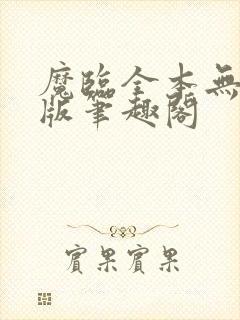 魔臨全本無
版筆趣閣
實果實果